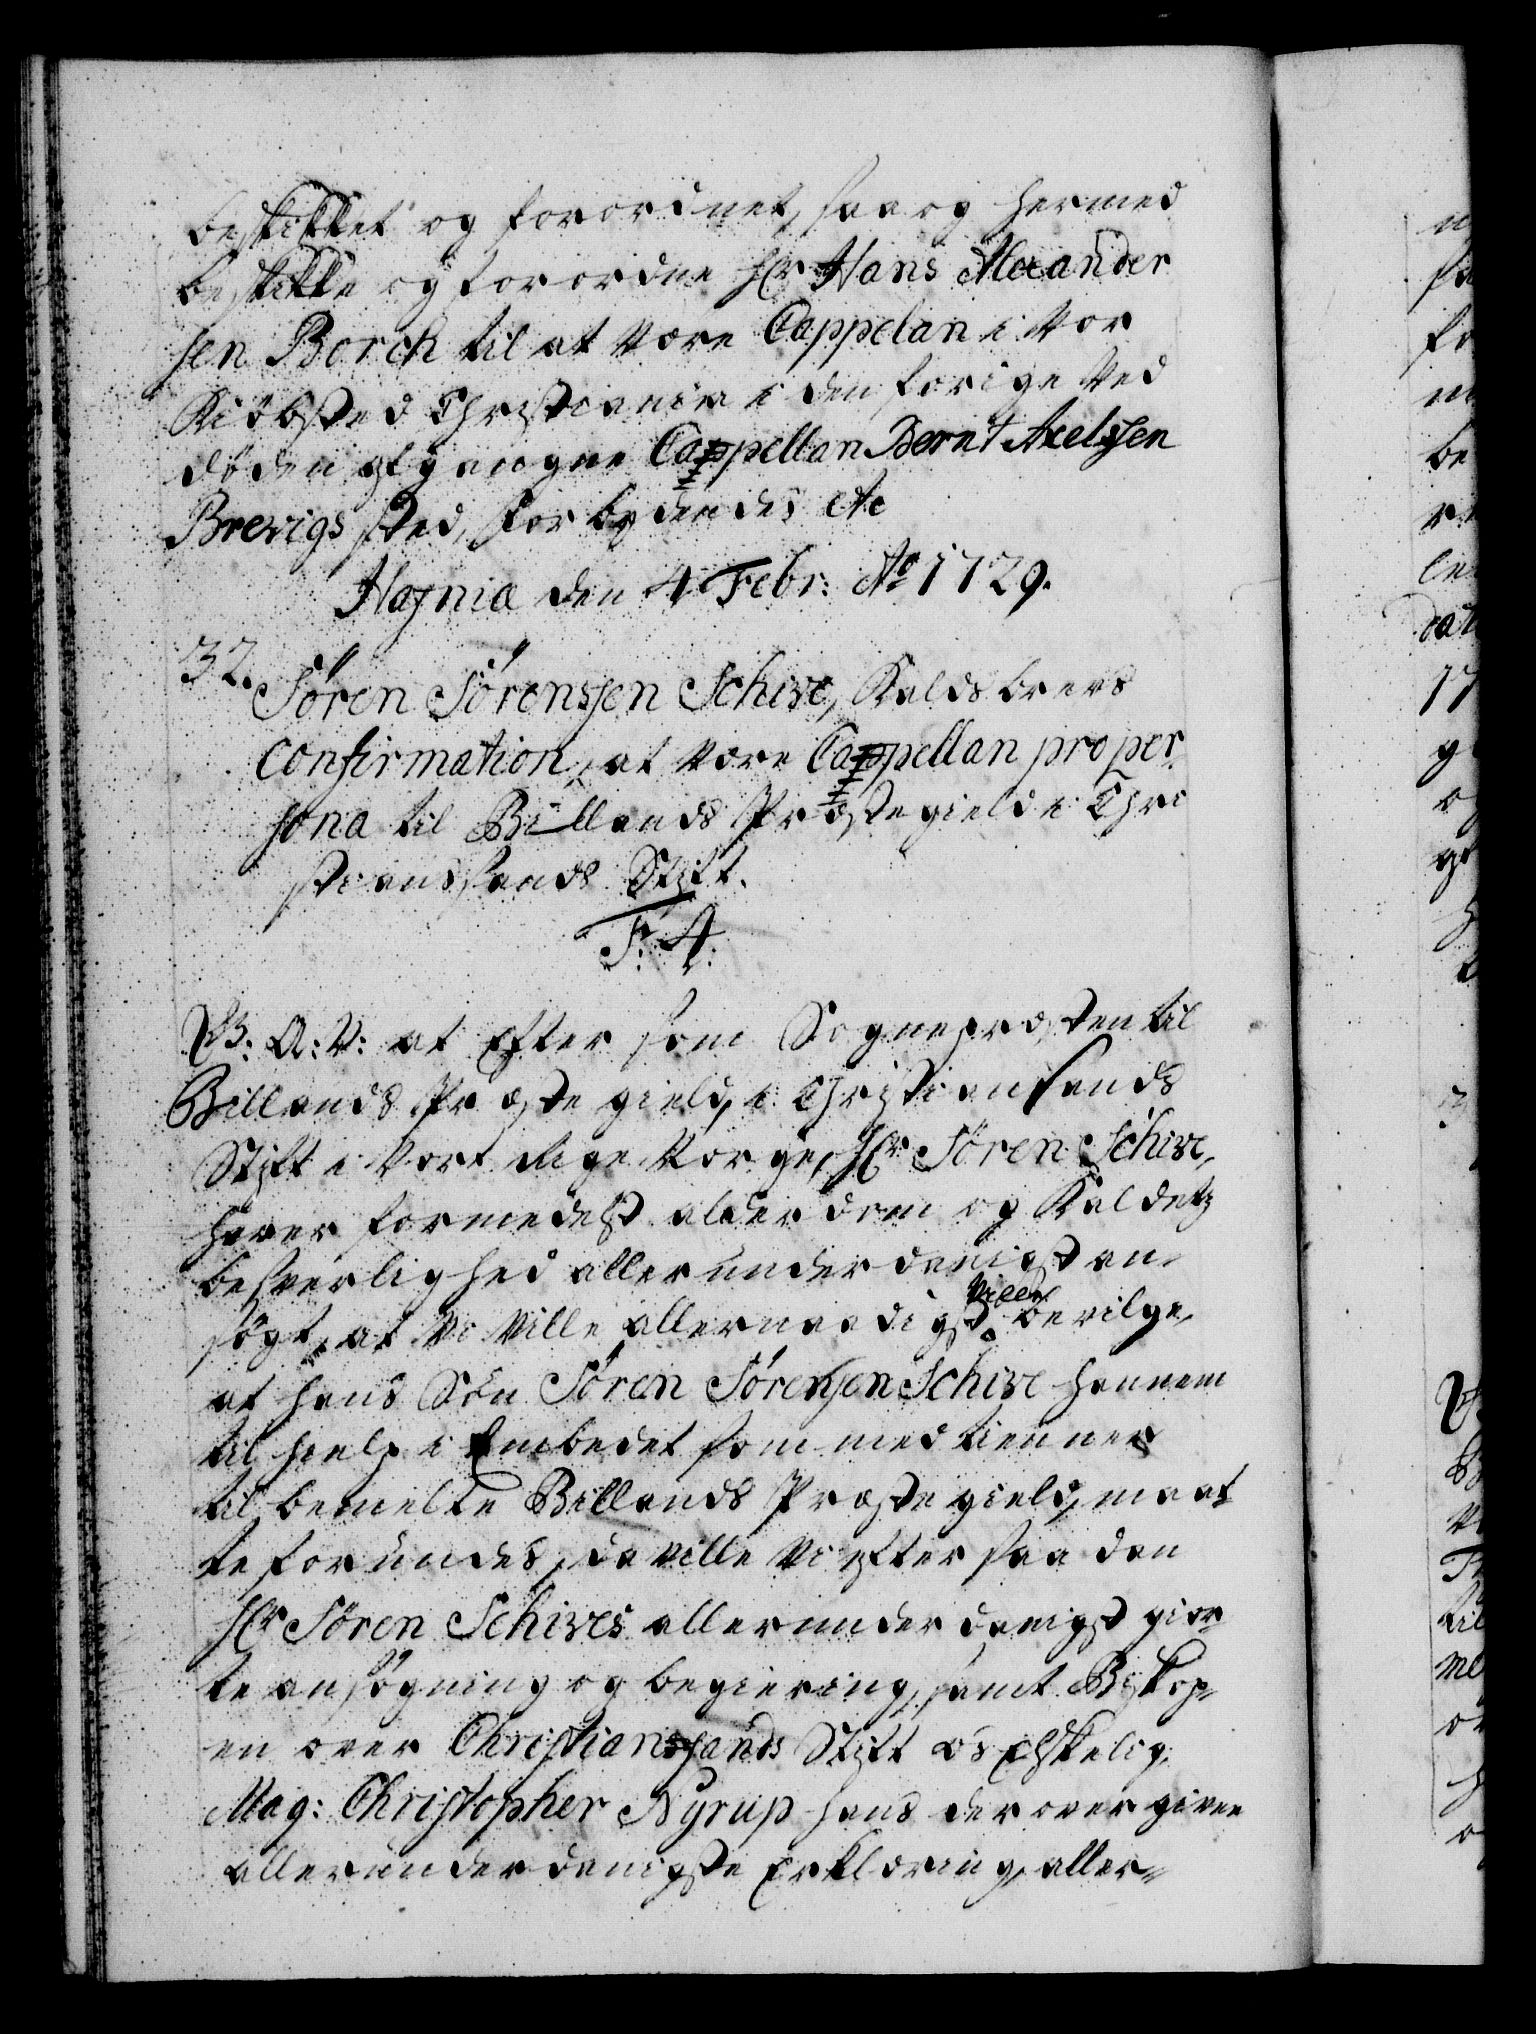 beskikket og forordnet, saa og hermed
beskikke og forordne Hr Hans Alexander
sen Borch til at være Cappelan i Vor
Kiöbsted Christiania i den forige ved
döden afgangne Cappellan Bernt Axelssen
Brevigs sted, forbydendes etc
Hafniæ den 4 Febr: Ao 1729.
32.
Sören Sörenssen Schive, Kaldsbrevs
Confirmation, at være Cappellan pro per
sona til Billands Præstegield i Chri
stianssands Stift.
F: 4:
V. G. A: V: at Eftersom Sognepræsten til
Billands Præstegield, i Christiansands
Stift i Vort Rige Norge, Hr Sören Schive,
haver formedelst alderdom og Kaldetz
besverlighed allerunderdanigst an-
sögt, at Vi Ville allernaadigst bevilge,
at hans Sön Sören Sörensen Schive hannem
til hielp i Embedet som medtienner
til bemelte Billands Præstegield, maat
te forundes, da ville Vi efter saadan
Hr Sören Schives allerunderdanigst gior
te ansögning og begiering, samt Biskop-
en over Christianssands Stift os Elskelig
Mag: Christopher Nyrup hans derover given
allerunderdanigste Erklæring, aller-